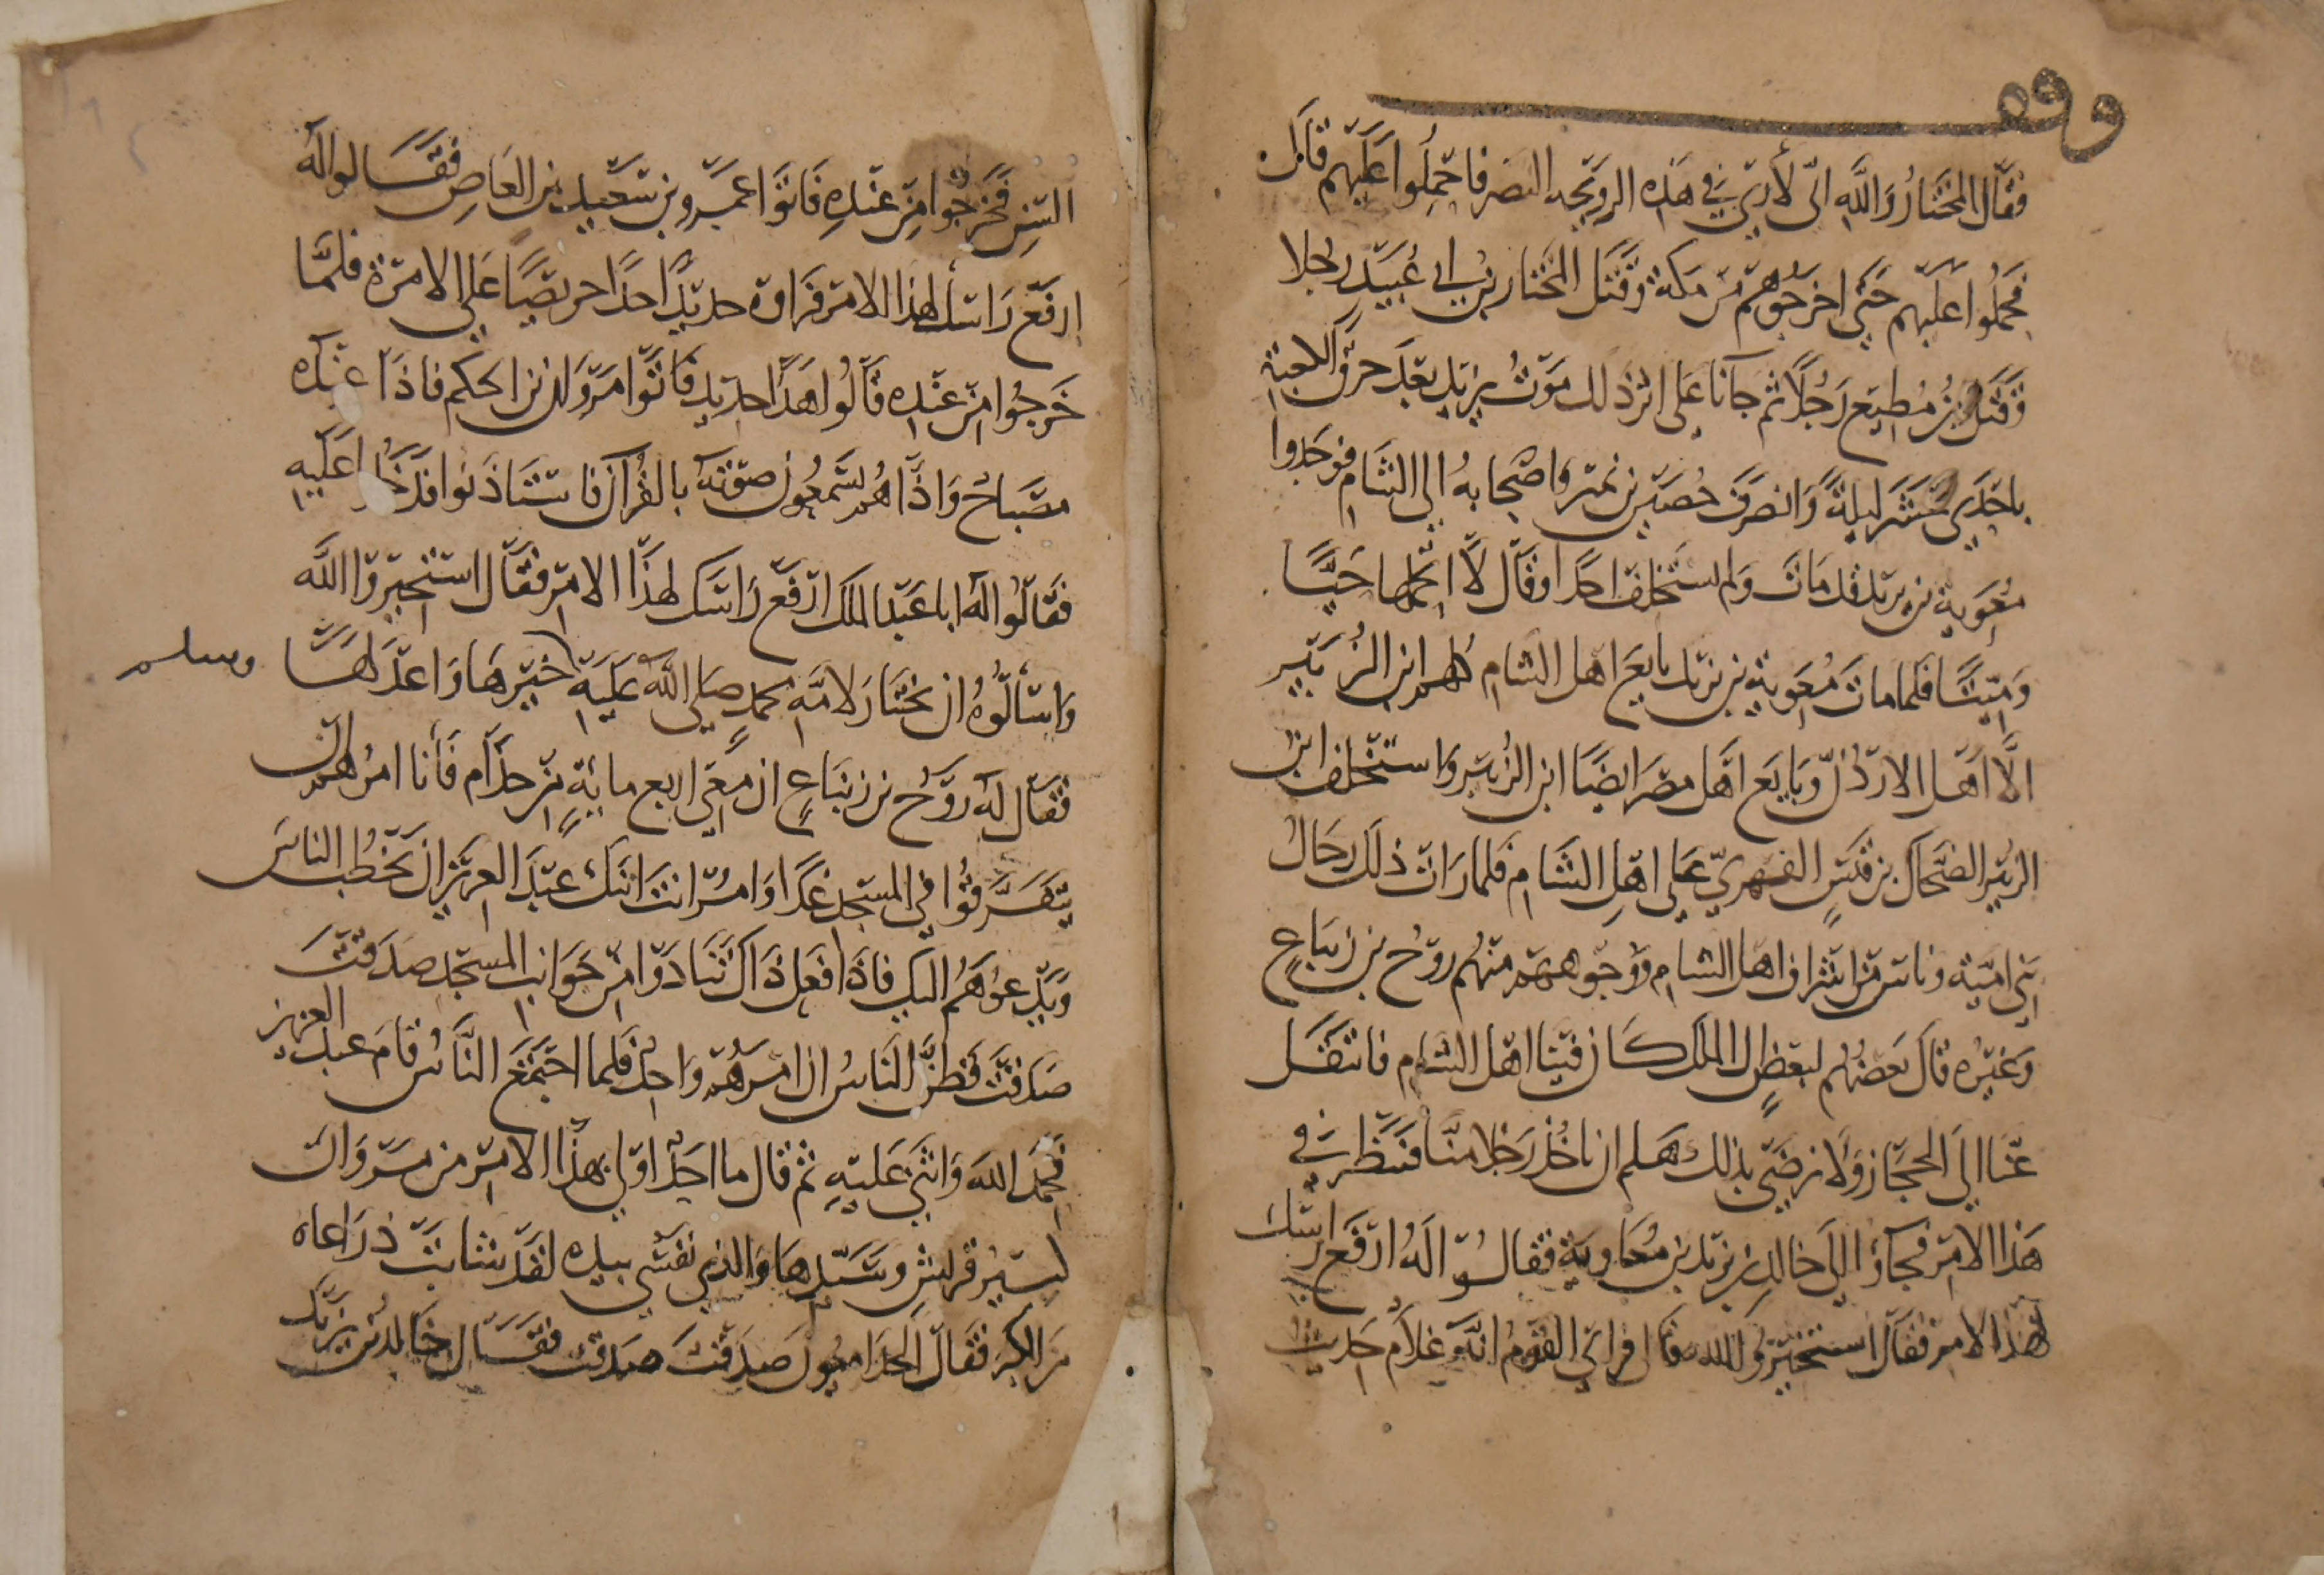 وقف
فقال المختار والله انى لاري في هذه الرويحه النصر فاحملوا عليهم قال
فحملوا عليهم حتى اخرجوهم من مكة وقتل المختار بن ابي عبيد رجلا
وقتل بن مطيع رجلا ثم جانا على اثر ذلك موت يزيد بعد حرق الكعبة
باحدى عشر ليلة وانصرف حصين بن نمير واصحابه الى الشام فوجدوا
معوية بن يزيد قد مات ولم يستخلف احدا وقال لا اتحملها حيا
وميتا فلما مات معوية بن يزيد بايع اهل الشام كلهم ابن الزبير
الا اهل الاردن وبايع اهل مصر ايضا ابن الزبير واستخلف ابن
الزبير الضحاك بن قيس الفهري على اهل الشام فلما رات ذلك رجال
بني امية وناس من اشراف اهل الشام ووجوههم منهم روح بن زنباع
وغيره قال بعضهم لبعض ان الملك كان فينا اهل الشام فانتقل
عنا الى الحجاز ولا نرضى بذلك هلم ان ناخذ رجلا منا فننظر في
هذا الامر فجاؤا الى خالد بن يزيد بن معاوية فقالوا له ارفع راسك
لهذا الامر فقال استخيروا الله فاني القوم انه غلام حديث
السن فخرجوا من عنده فاتوا عمرو بن سعيد بن العاص فقالوا له
ارفع راسك لهذا الامر فراوه حديدا احدا حريصا على الامرة فلما
خرجوا من عنده قالوا هذا حديد فاتوا مروان بن الحكم فاذا عنده
مصباح واذا هم يسمعون صوته بالقرآن فاستاذنوا فدخلوا عليه
فقالوا له ابا عبد الملك ارفع راسك لهذا الامر فقال استخيروا الله
واسألوه ان يختار لامة محمد صلى الله عليه وسلم خيرها واعدلها
فقال له روح بن زنباع ان معي اربع مائة من جذام فأنا امرهم ان
يتفرقوا في المسجد غدا وامر انت ابنك عبد العزيز ان يخطب الناس
ويدعوهم اليك فاذا فعل ذاك تنادوا من جوانب المسجد صدقت
صدقت فظن الناس ان امرهم واحد فلما اجتمع الناس قام عبد العزيز
فحمد الله واثنى عليه ثم قال ما احد اولي بهذا الامر من مروان
كبير قريش وسيدها والذي نفسي بيده لقد شابت ذراعاه
من الكبر فقال الجذاميون صدقت صدقت فقال خالد بن يزيد